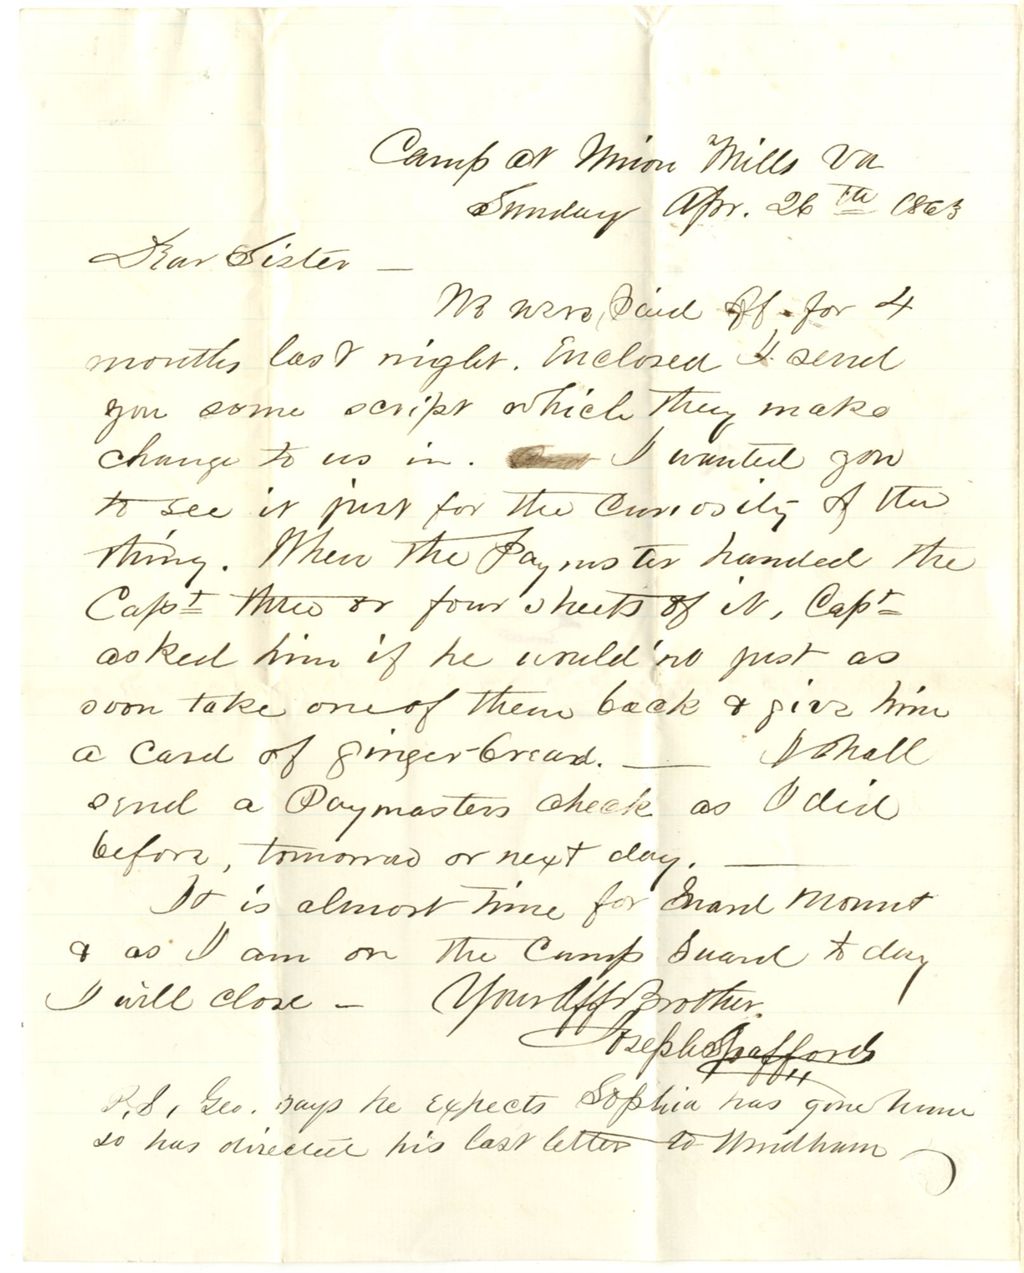 Camp at Union Mills Va
Sunday Apr. 26th 1863
Dear Sister —
We were paid off for 4
months last night. Enclosed I send
you some script which they make
change to us in. I wanted you
to see it just for the curiosity of the
thing. When the Paymster handed the
Capt three or four sheets of it, Capt
asked him if he would'nt just as
soon take one of them back & give him
a card of ginger-bread. — I shall
send a Paymasters check as I did
before, tomorrow or next day. —
It is almost time for Guard Mount
& as I am on the Camp Guard to day
I will close — Your Afft Brother.
Joseph Spafford
P.S. Geo. says he expects Sophia has gone home
so has directed his last letter to Windham